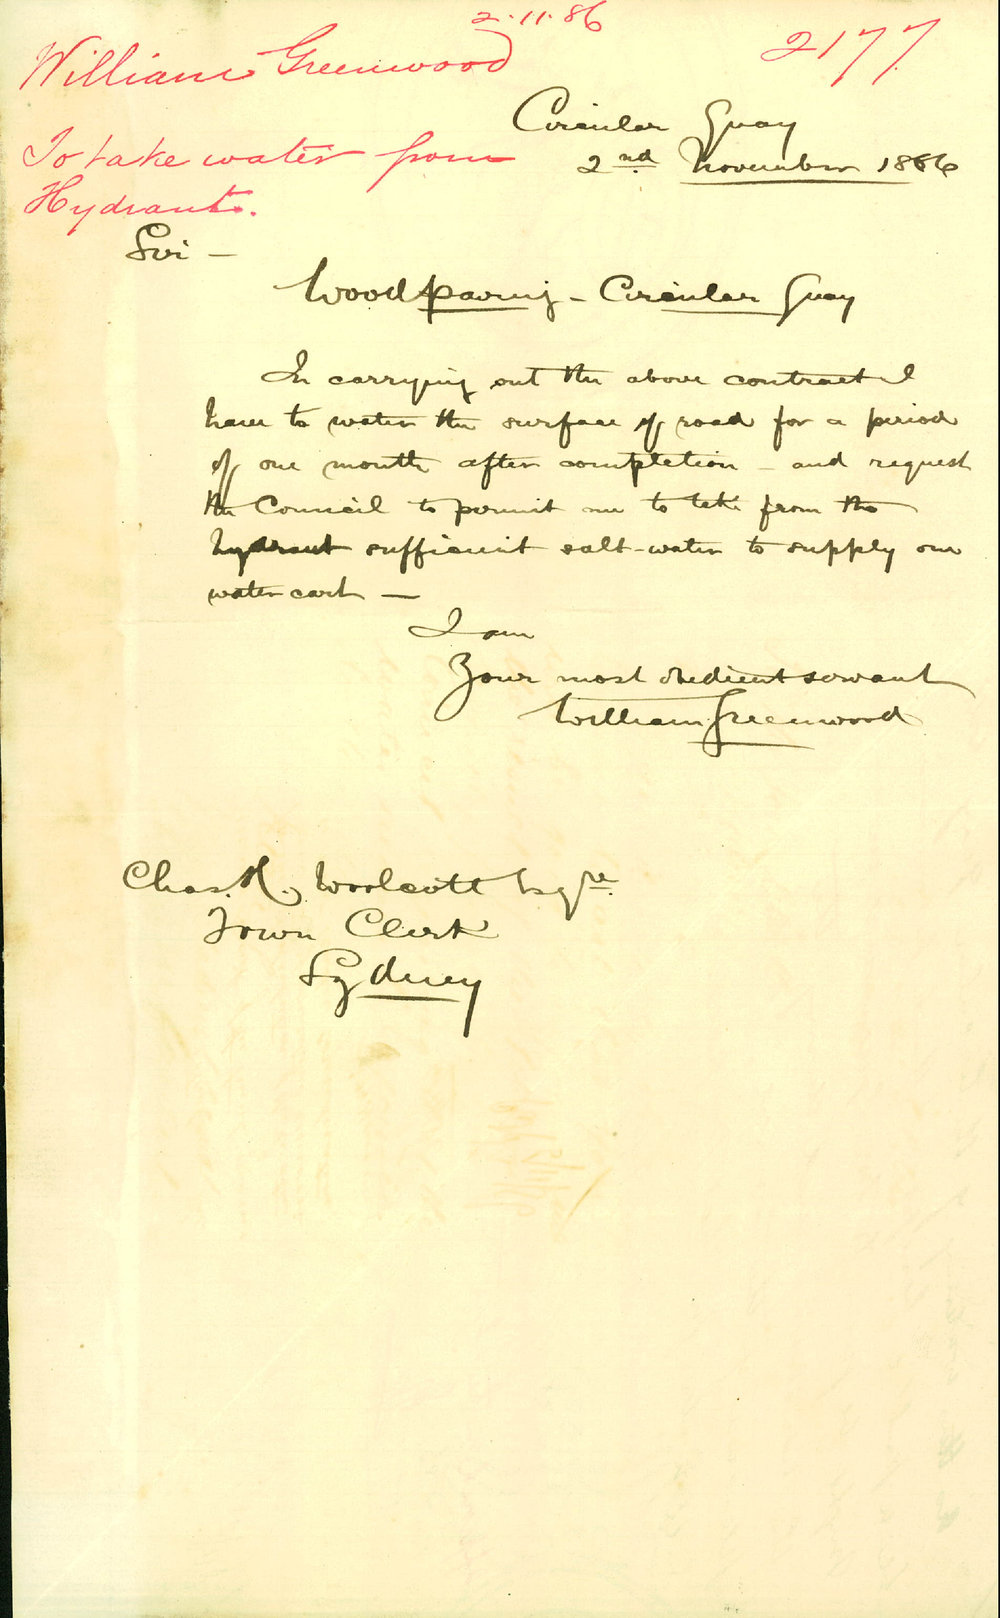 2.11.86
William Greenwood
2177
To take water from
Hydrants.
Circular Quay
2nd November 1886
Sir —
Woodpaving - Circular Quay
In carrying out the above contract I
have to water the surface of road for a period
of one month after completion - and request
the Council to permit me to take from the
hydrant sufficient salt-water to supply our
water cart —
I am
Your most obedient servant
William Greenwood
Chas. H. Woolcott Esqre.
Town Clerk
Sydney